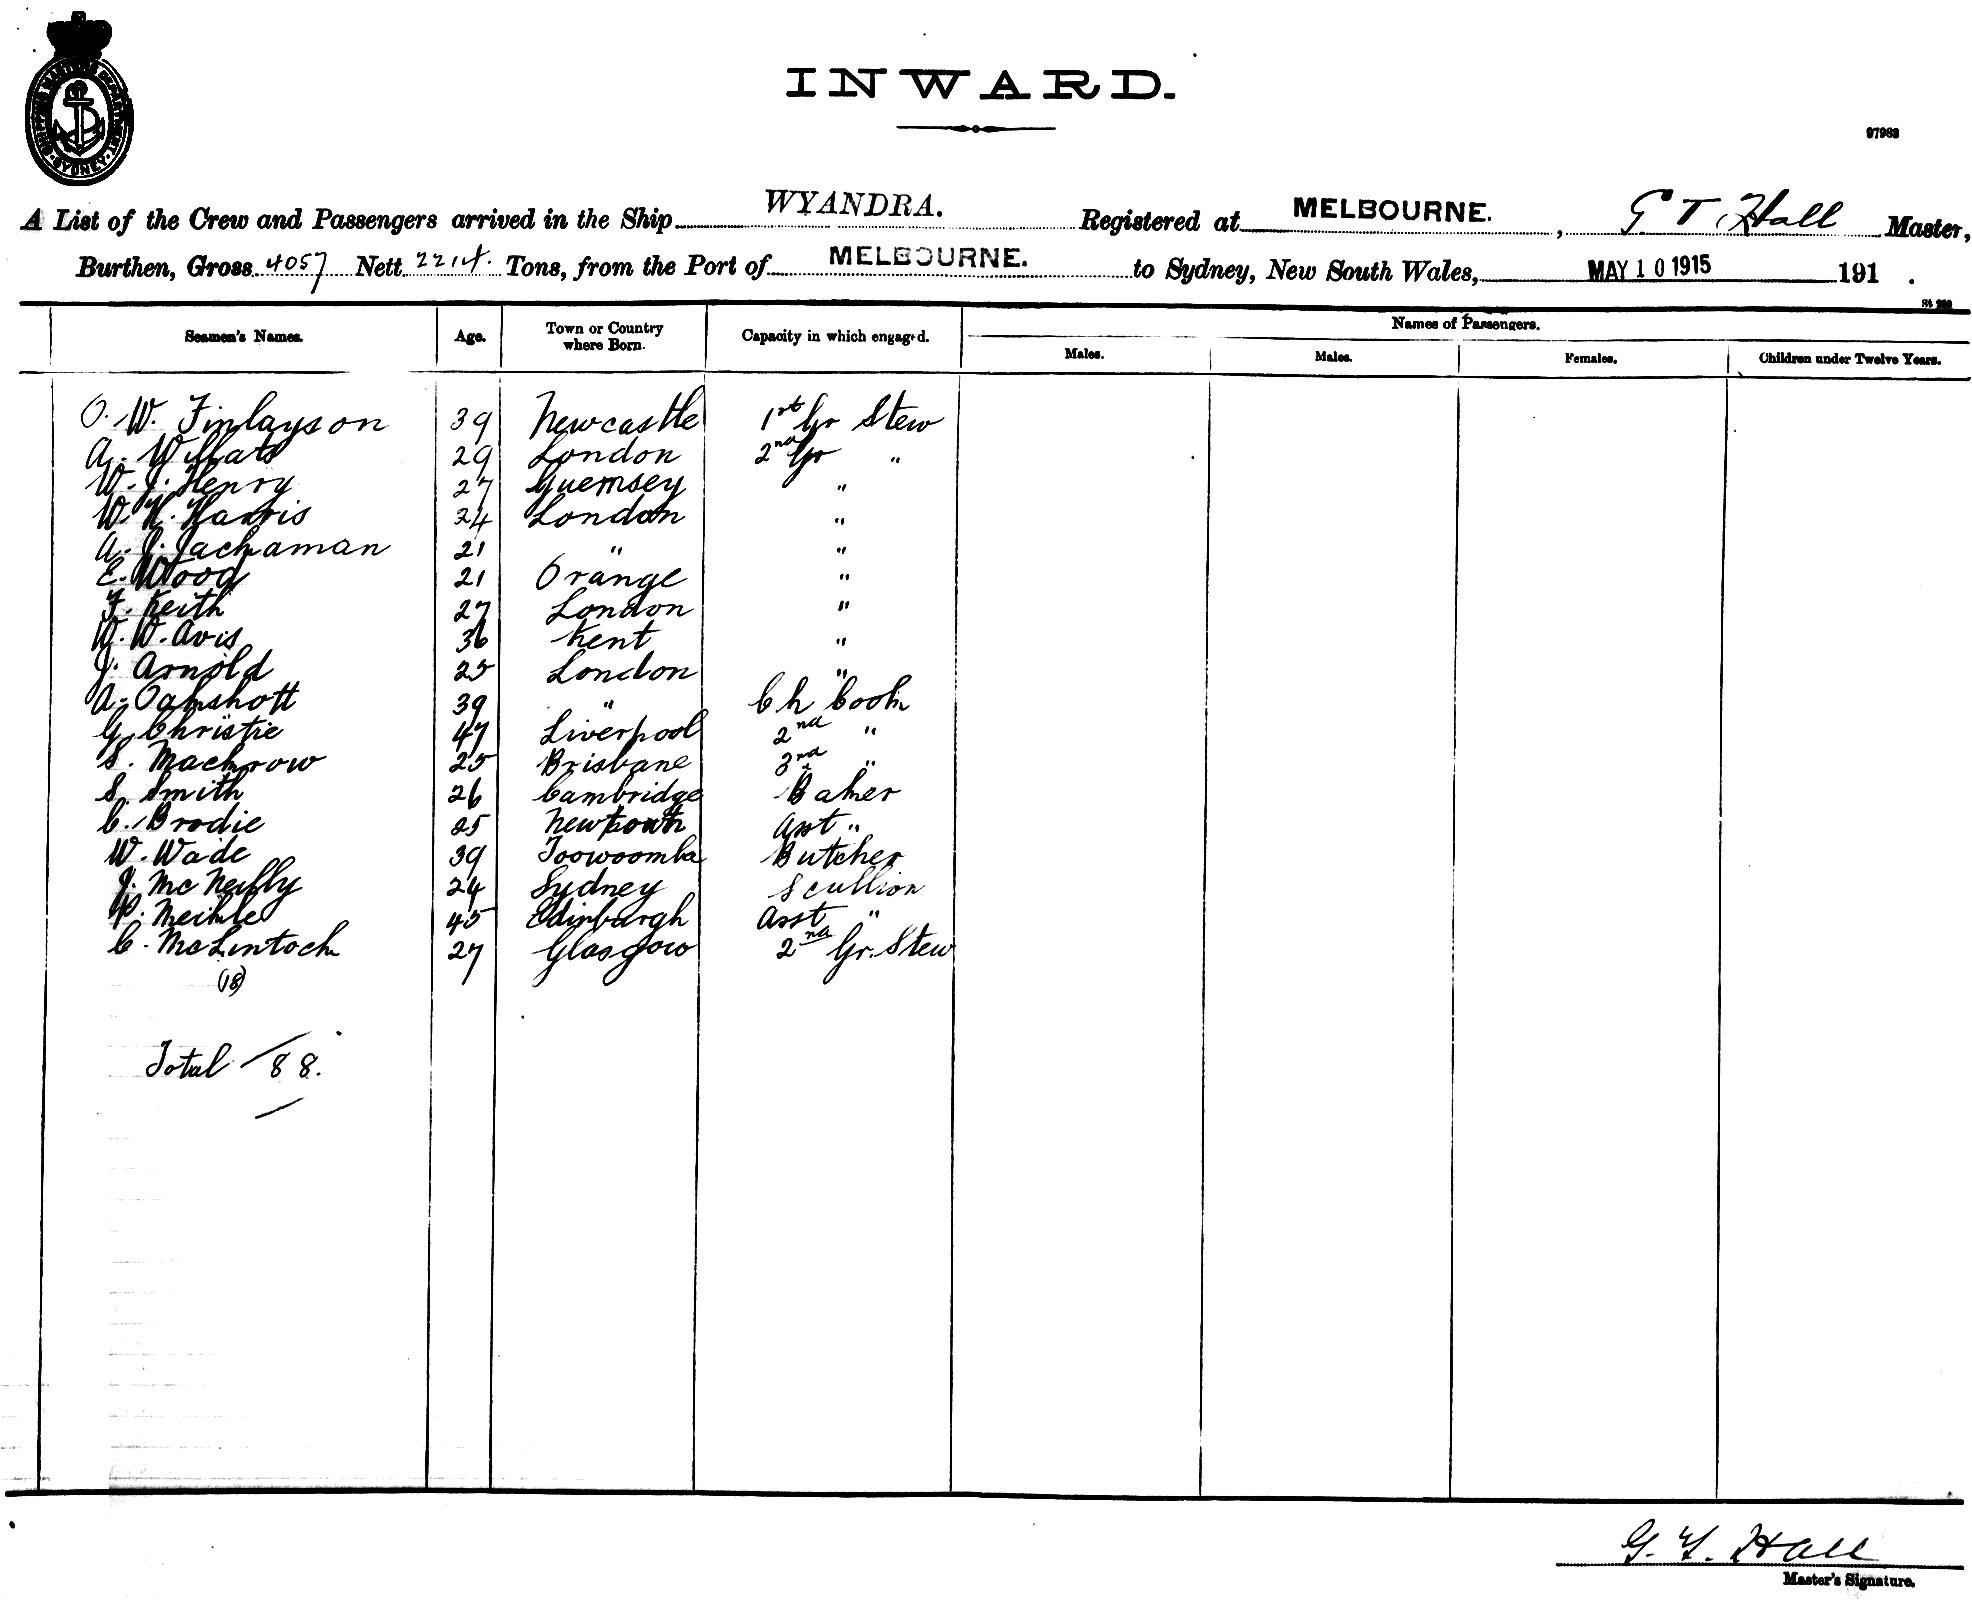 SHIPPING MASTERS DEPARTMENT · SYDNEY ·
INWARD.
97983
A List of the Crew and Passengers arrived in the Ship WYANDRA. Registered at MELBOURNE. , G T Hall Master,
Burthen, Gross 4057 Nett 2214. Tons, from the Port of MELBOURNE. to Sydney, New South Wales, MAY 10 1915 191 .
Seamen's Names. Age. Town or Country where Born. Capacity in which engaged. Names of Passengers.
Males. Males. Females. Children under Twelve Years.
O. W. Finlayson 39 Newcastle 1st Gr Stew
A. Willats 29 London 2nd Gr "
W. J. Henry 27 Guernsey "
W. H. Harris 24 London "
A. J. Jachaman 21 " "
E. Wood 21 Orange "
F. Keith 27 London "
W. W. Avis 36 Kent "
J. Arnold 25 London "
A. Oakshott 39 " Ch Cook
G. Christie 47 Liverpool 2nd "
S. Machrow 25 Brisbane 3rd "
S. Smith 26 Cambridge Baker
C. Brodie 25 Newtown Asst "
W. Wade 39 Toowoomba Butcher
J. McNeilly 24 Sydney Scullion
P. Meikle 45 Edinburgh Asst "
C. McLintock 27 Glasgow 2nd Gr. Stew
(18)
Total 88.
G. T. Hall
Master's Signature.